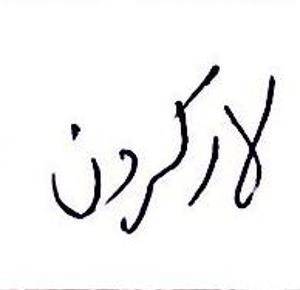 لارکردن